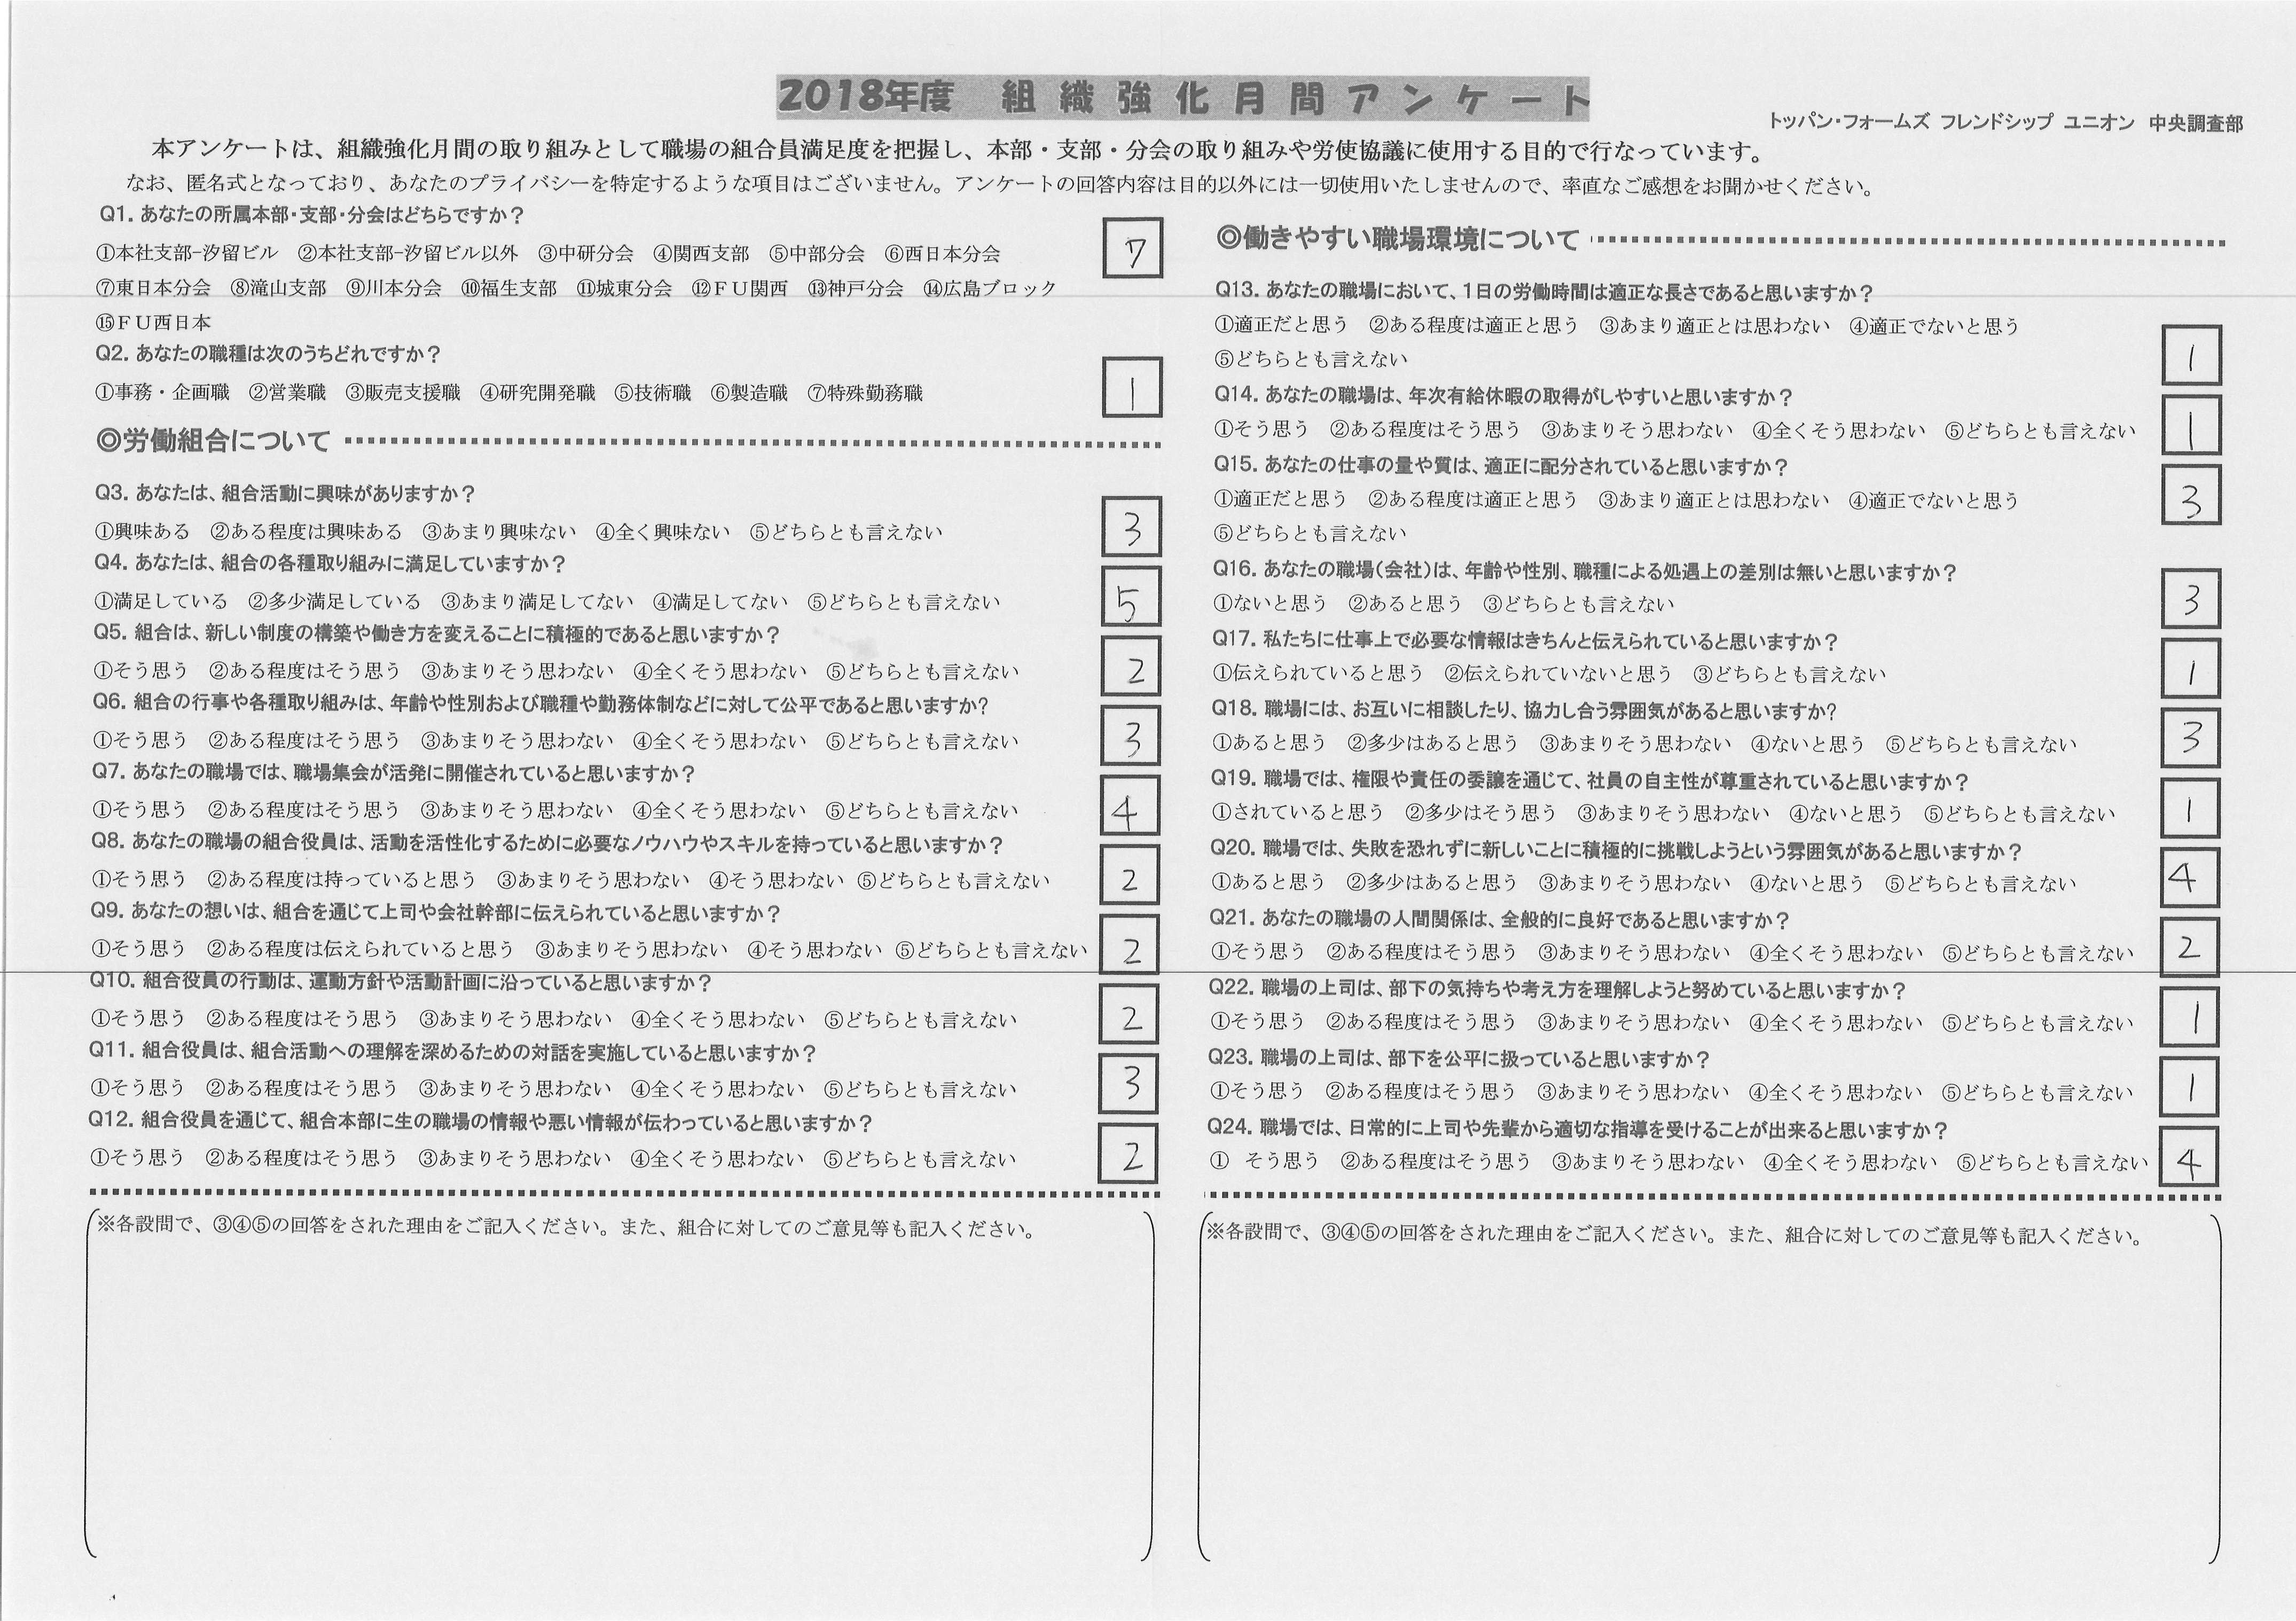 2018年度　組織強化月間アンケート
トッパン・フォームズ フレンドシップ ユニオン 中央調査部
本アンケートは、組織強化月間の取り組みとして職場の組合員満足度を把握し、本部・支部・分会の取り組みや労使協議に使用する目的で行なっています。
なお、匿名式となっており、あなたのプライバシーを特定するような項目はございません。アンケートの回答内容は目的以外には一切使用いたしませんので、率直なご感想をお聞かせください。
Q1. あなたの所属本部・支部・分会はどちらですか？
①本社支部-汐留ビル　②本社支部-汐留ビル以外　③中研分会　④関西支部　⑤中部分会　⑥西日本分会
7
⑦東日本分会　⑧滝山支部　⑨川本分会　⑩福生支部　⑪城東分会　⑫ＦＵ関西　⑬神戸分会　⑭広島ブロック
⑮ＦＵ西日本
Q2. あなたの職種は次のうちどれですか？
①事務・企画職　②営業職　③販売支援職　④研究開発職　⑤技術職　⑥製造職　⑦特殊勤務職
1
◎労働組合について
Q3. あなたは、組合活動に興味がありますか？
①興味ある　②ある程度は興味ある　③あまり興味ない　④全く興味ない　⑤どちらとも言えない
3
Q4. あなたは、組合の各種取り組みに満足していますか？
①満足している　②多少満足している　③あまり満足してない　④満足してない　⑤どちらとも言えない
5
Q5. 組合は、新しい制度の構築や働き方を変えることに積極的であると思いますか？
①そう思う　②ある程度はそう思う　③あまりそう思わない　④全くそう思わない　⑤どちらとも言えない
2
Q6. 組合の行事や各種取り組みは、年齢や性別および職種や勤務体制などに対して公平であると思いますか?
①そう思う　②ある程度はそう思う　③あまりそう思わない　④全くそう思わない　⑤どちらとも言えない
3
Q7. あなたの職場では、職場集会が活発に開催されていると思いますか？
①そう思う　②ある程度はそう思う　③あまりそう思わない　④全くそう思わない　⑤どちらとも言えない
4
Q8. あなたの職場の組合役員は、活動を活性化するために必要なノウハウやスキルを持っていると思いますか？
①そう思う　②ある程度は持っていると思う　③あまりそう思わない　④そう思わない　⑤どちらとも言えない
2
Q9. あなたの想いは、組合を通じて上司や会社幹部に伝えられていると思いますか？
①そう思う　②ある程度は伝えられていると思う　③あまりそう思わない　④そう思わない　⑤どちらとも言えない
2
Q10. 組合役員の行動は、運動方針や活動計画に沿っていると思いますか？
①そう思う　②ある程度はそう思う　③あまりそう思わない　④全くそう思わない　⑤どちらとも言えない
2
Q11. 組合役員は、組合活動への理解を深めるための対話を実施していると思いますか？
①そう思う　②ある程度はそう思う　③あまりそう思わない　④全くそう思わない　⑤どちらとも言えない
3
Q12. 組合役員を通じて、組合本部に生の職場の情報や悪い情報が伝わっていると思いますか？
①そう思う　②ある程度はそう思う　③あまりそう思わない　④全くそう思わない　⑤どちらとも言えない
2
※各設問で、③④⑤の回答をされた理由をご記入ください。また、組合に対してのご意見等も記入ください。
◎働きやすい職場環境について
Q13. あなたの職場において、1日の労働時間は適正な長さであると思いますか？
①適正だと思う　②ある程度は適正と思う　③あまり適正とは思わない　④適正でないと思う
⑤どちらとも言えない
1
Q14. あなたの職場は、年次有給休暇の取得がしやすいと思いますか？
①そう思う　②ある程度はそう思う　③あまりそう思わない　④全くそう思わない　⑤どちらとも言えない
1
Q15. あなたの仕事の量や質は、適正に配分されていると思いますか？
①適正だと思う　②ある程度は適正と思う　③あまり適正とは思わない　④適正でないと思う
3
⑤どちらとも言えない
Q16. あなたの職場（会社）は、年齢や性別、職種による処遇上の差別は無いと思いますか？
①ないと思う　②あると思う　③どちらとも言えない
3
Q17. 私たちに仕事上で必要な情報はきちんと伝えられていると思いますか？
①伝えられていると思う　②伝えられていないと思う　③どちらとも言えない
1
Q18. 職場には、お互いに相談したり、協力し合う雰囲気があると思いますか?
①あると思う　②多少はあると思う　③あまりそう思わない　④ないと思う　⑤どちらとも言えない
3
Q19. 職場では、権限や責任の委譲を通じて、社員の自主性が尊重されていると思いますか？
①されていると思う　②多少はそう思う　③あまりそう思わない　④ないと思う　⑤どちらとも言えない
1
Q20. 職場では、失敗を恐れずに新しいことに積極的に挑戦しようという雰囲気があると思いますか？
①あると思う　②多少はあると思う　③あまりそう思わない　④ないと思う　⑤どちらとも言えない
4
Q21. あなたの職場の人間関係は、全般的に良好であると思いますか？
①そう思う　②ある程度はそう思う　③あまりそう思わない　④全くそう思わない　⑤どちらとも言えない
2
Q22. 職場の上司は、部下の気持ちや考え方を理解しようと努めていると思いますか？
①そう思う　②ある程度はそう思う　③あまりそう思わない　④全くそう思わない　⑤どちらとも言えない
1
Q23. 職場の上司は、部下を公平に扱っていると思いますか？
①そう思う　②ある程度はそう思う　③あまりそう思わない　④全くそう思わない　⑤どちらとも言えない
1
Q24. 職場では、日常的に上司や先輩から適切な指導を受けることが出来ると思いますか？
①　そう思う　②ある程度はそう思う　③あまりそう思わない　④全くそう思わない　⑤どちらとも言えない
4
※各設問で、③④⑤の回答をされた理由をご記入ください。また、組合に対してのご意見等も記入ください。